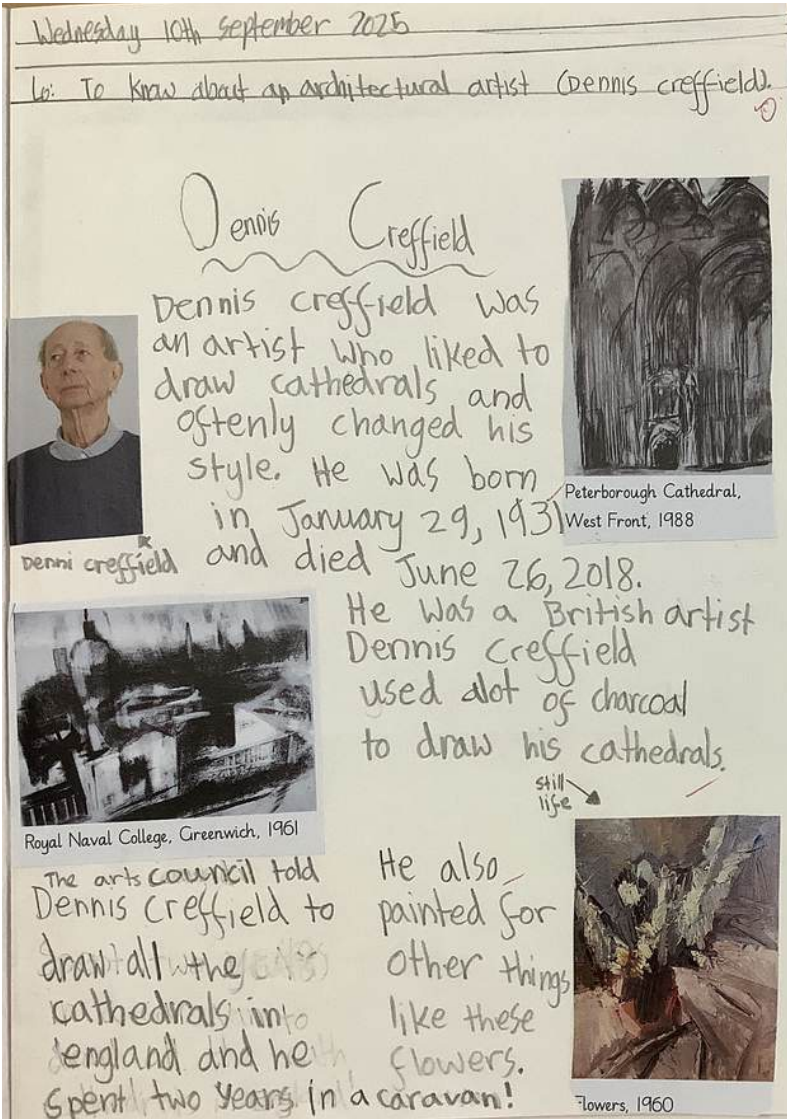 Wednesday 10th September 2025
Lo: To know about an architectural artist (Dennis creffield).
Dennis Creffield
Dennis creffield was
an artist who liked to
draw cathedrals and
oftenly changed his
style. He was born
in January 29, 1931
and died June 26, 2018.
Peterborough Cathedral,
West Front, 1988
Denni creffield
He was a British artist
Dennis creffield
used alot of charcoal
to draw his cathedrals.
Royal Naval College, Greenwich, 1961
still
life
The arts council told
Dennis Creffield to
draw all the
cathedrals in
england and he
spent two years in a caravan!
He also
painted for
other things
like these
flowers.
Flowers, 1960